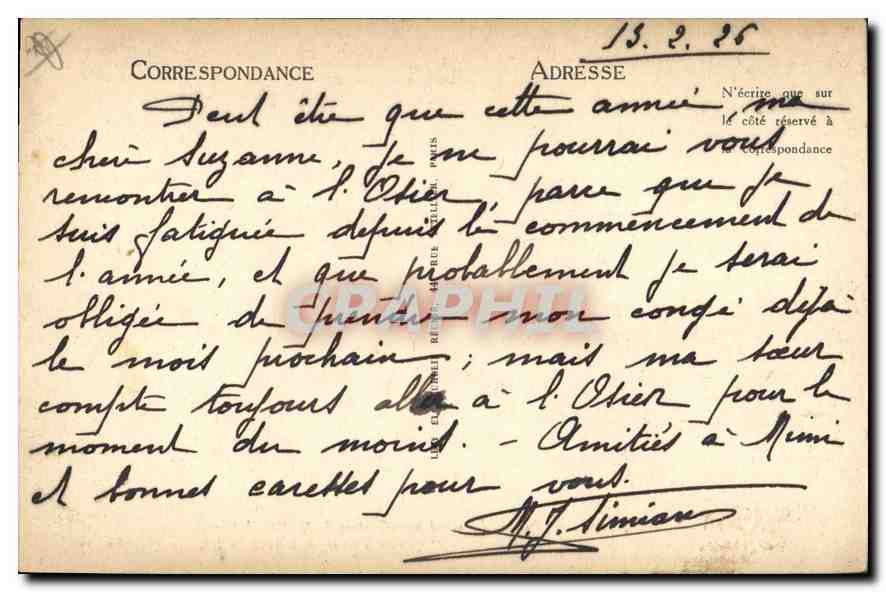 13.2.26
CORRESPONDANCE
ADRESSE
N'écrire que sur
le côté réservé à
la correspondance
Peut être que cette année, ma
chère Suzanne, je ne pourrai vous
rencontrer à l'Osier, parce que je
suis fatiguée depuis le commencement de
l'année, et que probablement je serai
obligée de prendre mon congé déjà
le mois prochain ; mais ma sœur
compte toujours aller à l'Osier pour le
moment du moins. - Amitiés à Mimi
et bonnes caresses pour vous.
M. J. Simian
RUE LETELLIER, PARIS
CPAPHIL